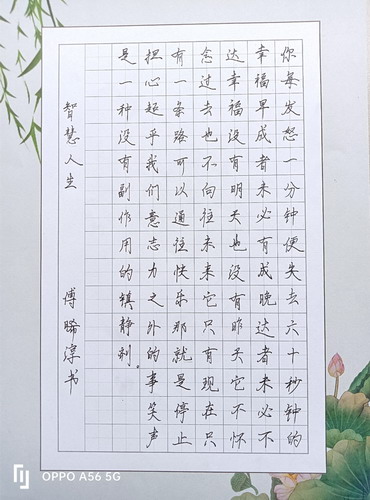 你每发怒一分钟便失去六十秒钟的
幸福早成者未必有成晚达者未必不
达幸福没有明天也没有昨天它不怀
念过去也不向往未来它只有现在只
有一条路可以通往快乐那就是停止
担心超乎我们意志力之外的事笑声
是一种没有副作用的镇静剂。
智慧人生 傅晞淳书
OPPO A56 5G